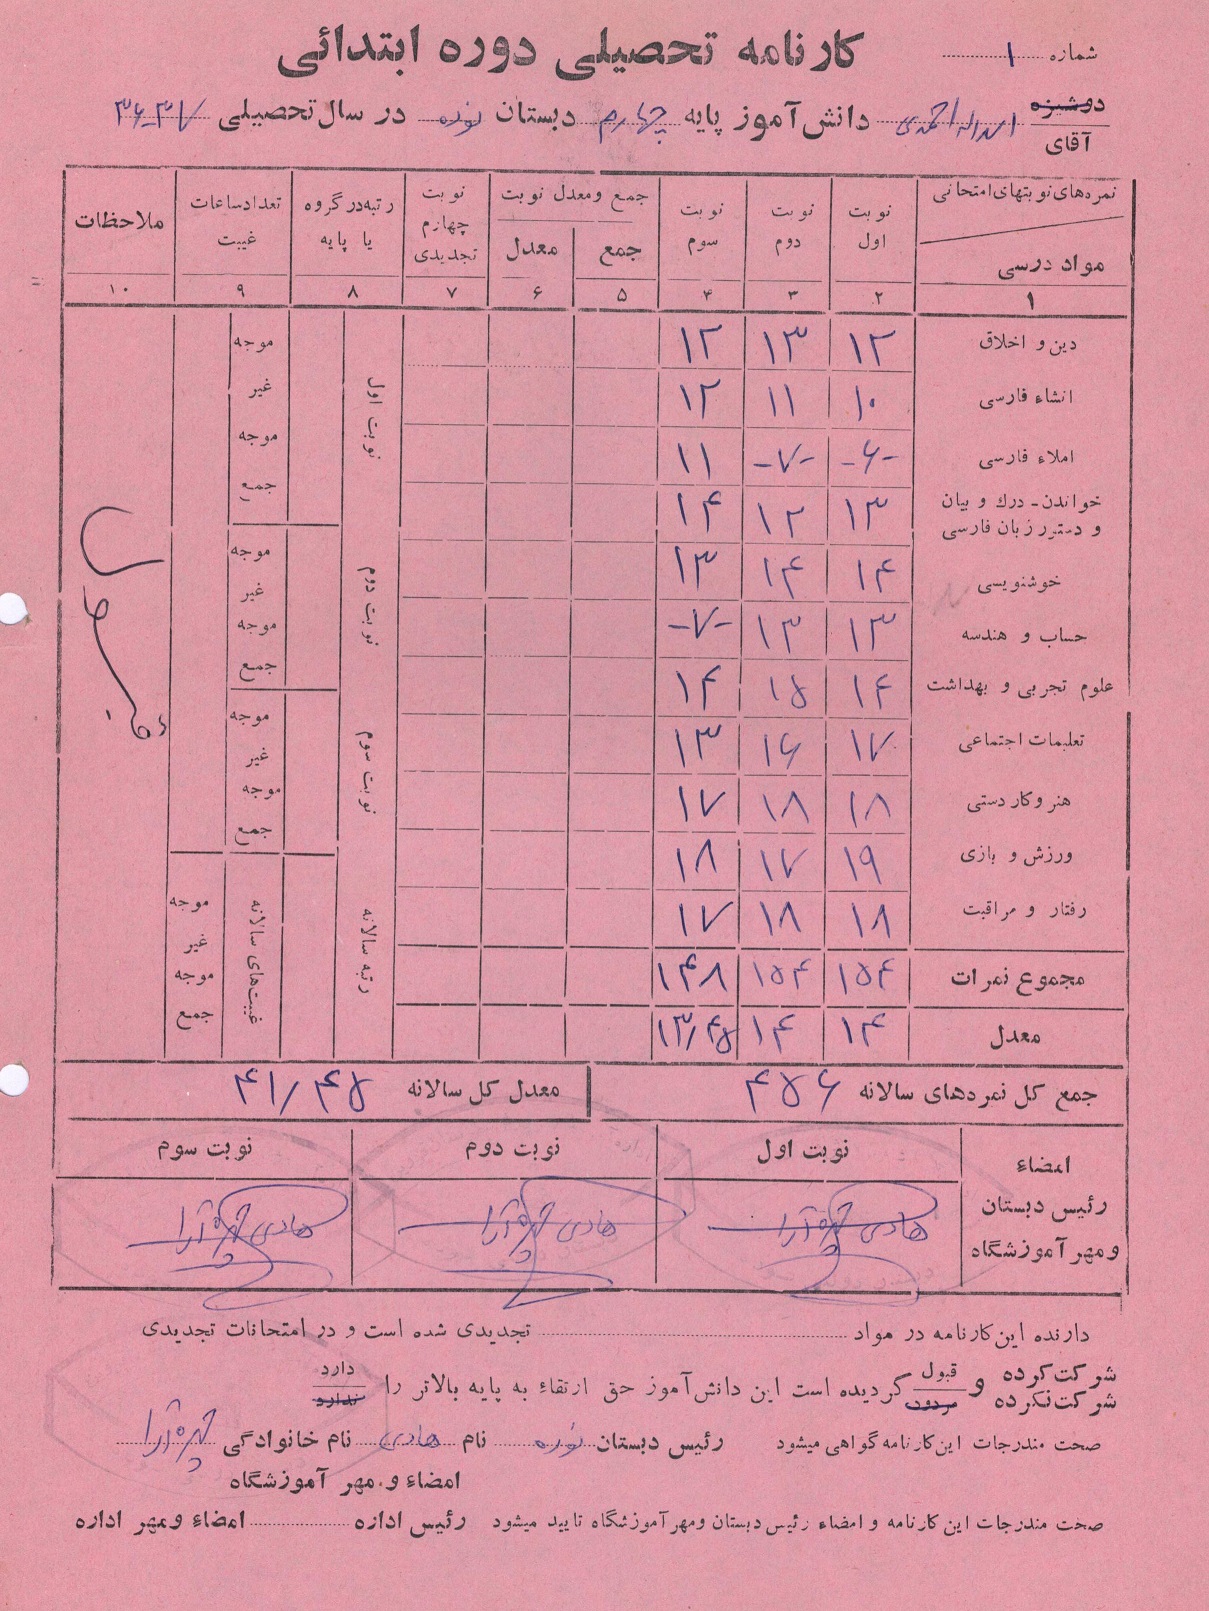 کارنامه تحصیلی دوره ابتدائی
شماره ۱
دوشیزه
آقای اسداله احمدی دانش آموز پایه چهارم دبستان نوده در سال تحصیلی ۳۷-۳۶
نمره‌های نوبتهای امتحانی نوبت اول نوبت دوم نوبت سوم جمع و معدل نوبت نوبت چهارم تجدیدی رتبه در گروه یا پایه تعداد ساعات غیبت ملاحظات
مواد درسی جمع معدل
۱ ۲ ۳ ۴ ۵ ۶ ۷ ۸ ۹ ۱۰
دین و اخلاق ۱۲ ۱۳ ۱۲
انشاء فارسی ۱۰ ۱۱ ۱۲
املاء فارسی -۶- -۷- ۱۱
خواندن - درك و بیان
و دستور زبان فارسی ۱۳ ۱۲ ۱۴
خوشنویسی ۱۴ ۱۴ ۱۳
حساب و هندسه ۱۳ ۱۳ -۷-
علوم تجربی و بهداشت ۱۴ ۱۵ ۱۴
تعلیمات اجتماعی ۱۷ ۱۶ ۱۳
هنر و کار دستی ۱۸ ۱۸ ۱۷
ورزش و بازی ۱۹ ۱۷ ۱۸
رفتار و مراقبت ۱۸ ۱۸ ۱۷
مجموع نمرات ۱۵۴ ۱۵۴ ۱۴۸
معدل ۱۴ ۱۴ ۱۳/۴۵
نوبت اول
موجه
غیر
موجه
جمع
نوبت دوم
موجه
غیر
موجه
جمع
نوبت سوم
موجه
غیر
موجه
جمع
رتبه سالانه
غیبت‌های سالانه
موجه
غیر
موجه
جمع
قبول
جمع کل نمرده‌های سالانه ۴۵۶ معدل کل سالانه ۴۱/۴۵
امضاء
رئیس دبستان
و مهر آموزشگاه
نوبت اول نوبت دوم نوبت سوم
هادی چهره آرا هادی چهره آرا هادی چهره آرا
دارنده این کارنامه در مواد تجدیدی شده است و در امتحانات تجدیدی
شرکت کرده
شرکت نکرده و قبول
مردود گردیده است این دانش آموز حق ارتقاء به پایه بالاتر را دارد
ندارد
صحت مندرجات این کارنامه گواهی میشود رئیس دبستان نوده نام هادی نام خانوادگی چهره آرا
امضاء و مهر آموزشگاه
صحت مندرجات این کارنامه و امضاء رئیس دبستان و مهر آموزشگاه تایید میشود رئیس اداره امضاء و مهر اداره